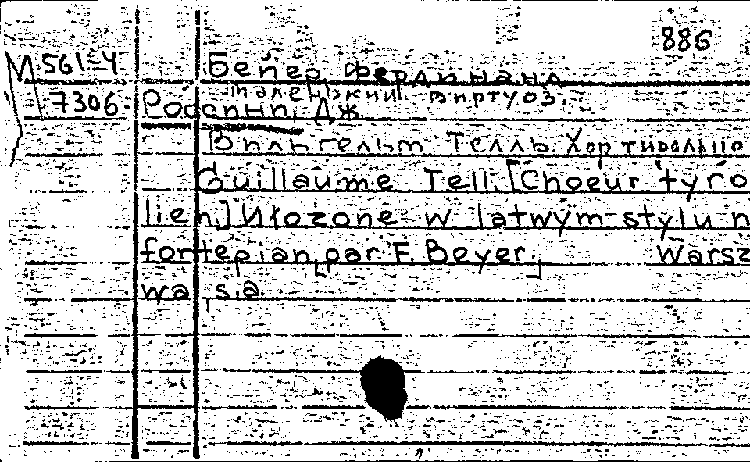 886
М.561-4 Бейер, Фердинанд
Маленький виртуоз.
7306 Россини, Дж
Вильгельм Телль. Хор тирольце
Guillaume Tell. [Choeur tyro
lien.] Ułozone w latwym stylu n
fortepian [par F. Beyer.] Warsz
wa, s.a.